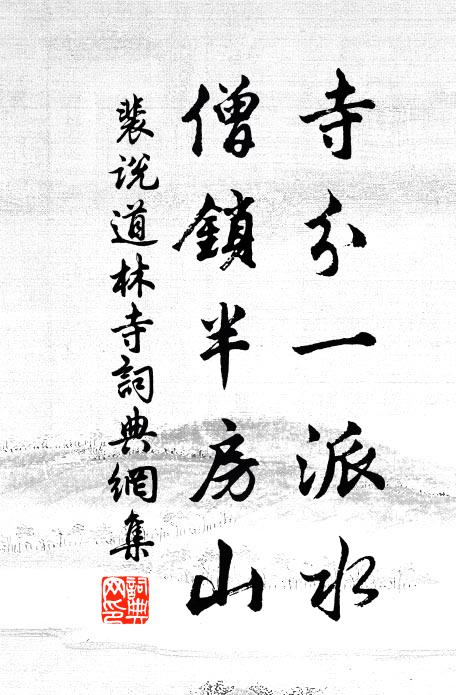 寺分一派水
僧鎖半房山
裴說道林寺詞典網集
詞典
网印